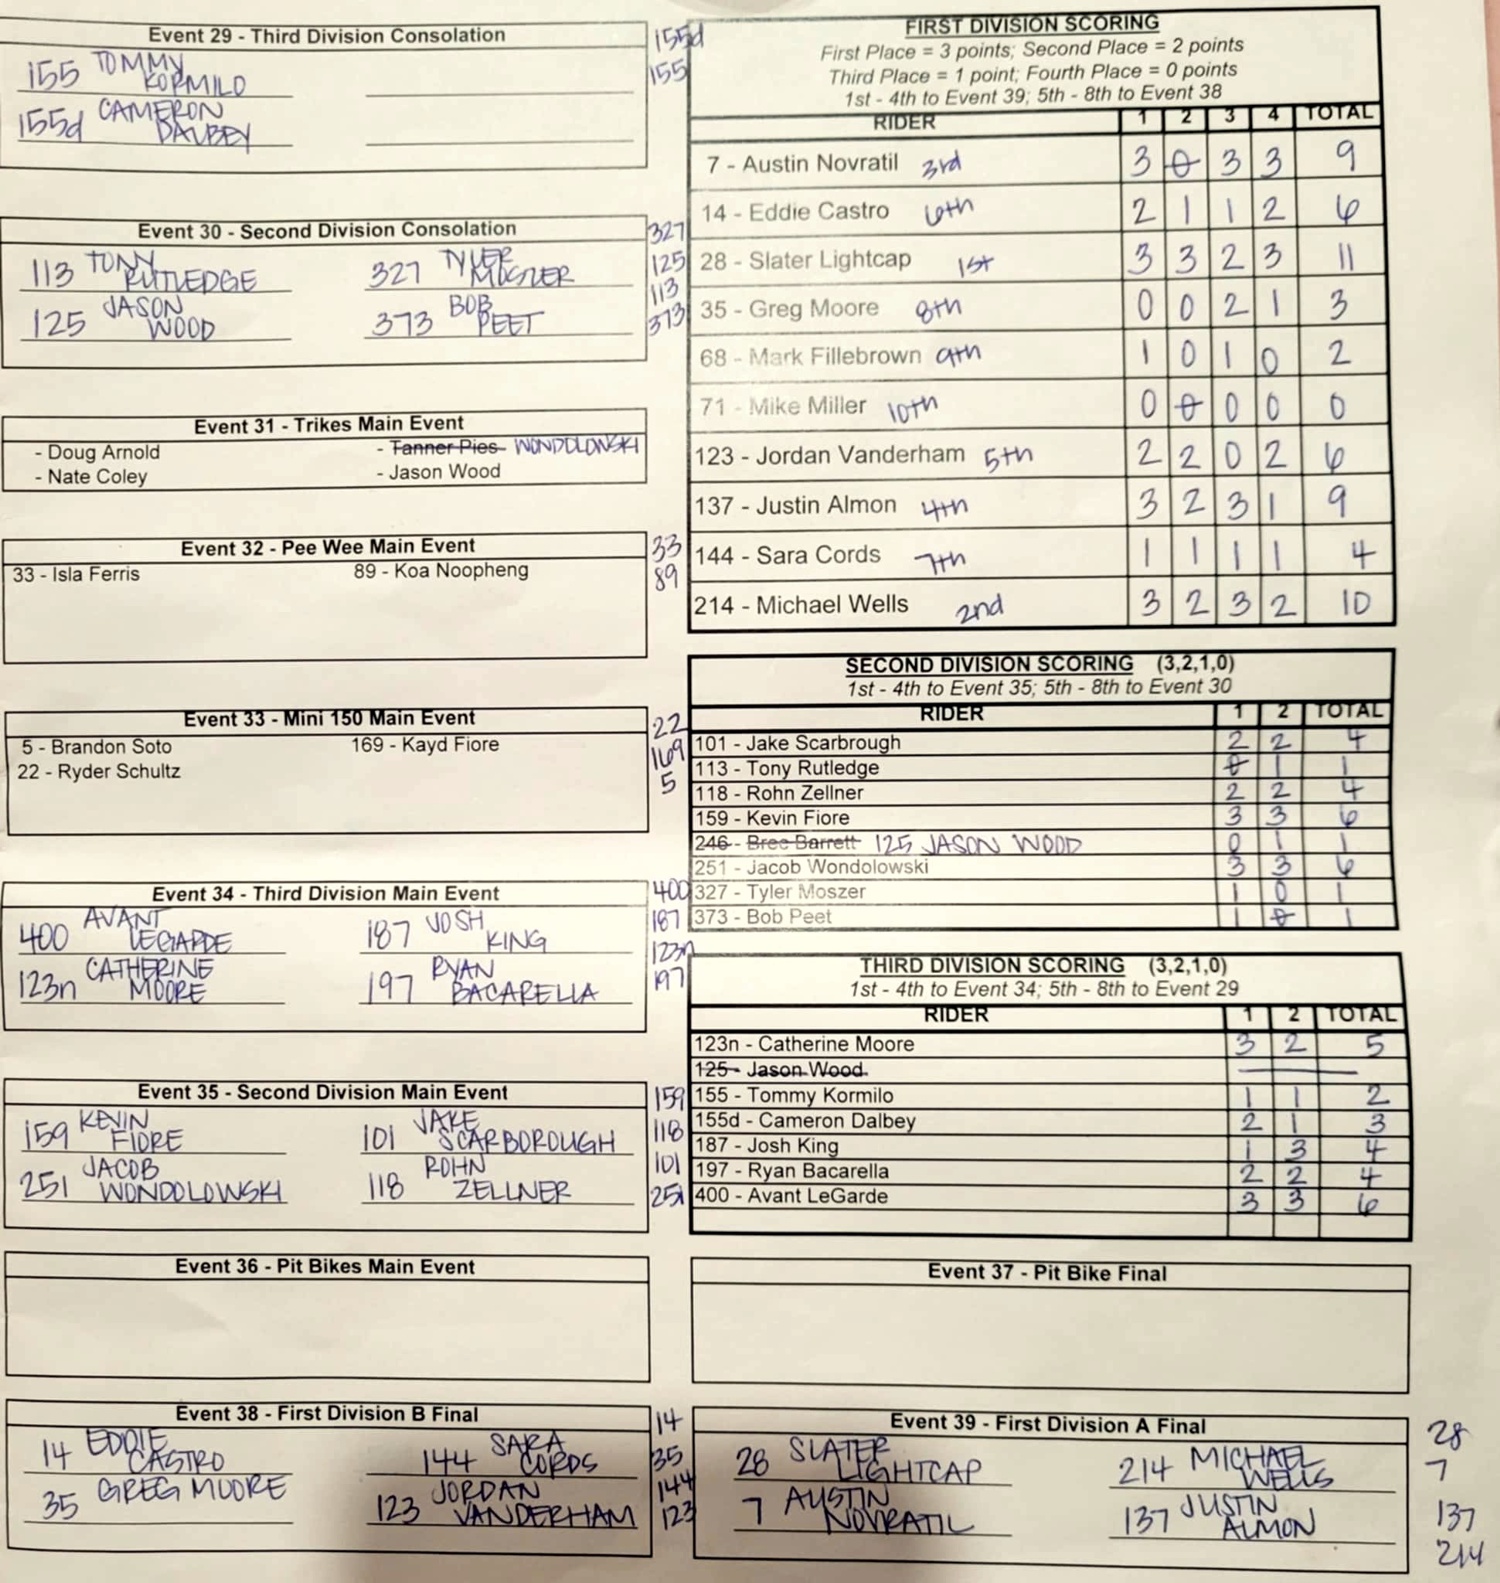 Event 29 - Third Division Consolation
155 TOMMY KORMILO
155d CAMERON DALBEY
155d
155
Event 30 - Second Division Consolation
113 TONY RUTLEDGE 327 TYLER MOSZER
125 JASON WOOD 373 BOB PEET
327
125
113
373
Event 31 - Trikes Main Event
- Doug Arnold - Tanner Pies WONDOLOWSKI
- Nate Coley - Jason Wood
Event 32 - Pee Wee Main Event
33 - Isla Ferris 89 - Koa Noopheng
33
89
Event 33 - Mini 150 Main Event
5 - Brandon Soto 169 - Kayd Fiore
22 - Ryder Schultz
22
169
5
Event 34 - Third Division Main Event
400 AVANT LEGARDE 187 JOSH KING
123n CATHERINE MOORE 197 RYAN BACARELLA
400
187
123n
197
Event 35 - Second Division Main Event
159 KEVIN FIORE 101 JAKE SCARBOROUGH
251 JACOB WONDOLOWSKI 118 ROHN ZELLNER
159
118
101
251
Event 36 - Pit Bikes Main Event
Event 38 - First Division B Final
14 EDDIE CASTRO 144 SARA CORDS
35 GREG MOORE 123 JORDAN VANDERHAM
14
35
144
123
FIRST DIVISION SCORING
First Place = 3 points; Second Place = 2 points
Third Place = 1 point; Fourth Place = 0 points
1st - 4th to Event 39; 5th - 8th to Event 38
RIDER 1 2 3 4 TOTAL
7 - Austin Novratil 3rd 3 0 3 3 9
14 - Eddie Castro 6th 2 1 1 2 6
28 - Slater Lightcap 1st 3 3 2 3 11
35 - Greg Moore 8th 0 0 2 1 3
68 - Mark Fillebrown 9th 1 0 1 0 2
71 - Mike Miller 10th 0 0 0 0 0
123 - Jordan Vanderham 5th 2 2 0 2 6
137 - Justin Almon 4th 3 2 3 1 9
144 - Sara Cords 7th 1 1 1 1 4
214 - Michael Wells 2nd 3 2 3 2 10
SECOND DIVISION SCORING (3,2,1,0)
1st - 4th to Event 35; 5th - 8th to Event 30
RIDER 1 2 TOTAL
101 - Jake Scarbrough 2 2 4
113 - Tony Rutledge 0 1 1
118 - Rohn Zellner 2 2 4
159 - Kevin Fiore 3 3 6
246 - Bree Barrett 125 JASON WOOD 0 1 1
251 - Jacob Wondolowski 3 3 6
327 - Tyler Moszer 1 0 1
373 - Bob Peet 1 0 1
THIRD DIVISION SCORING (3,2,1,0)
1st - 4th to Event 34; 5th - 8th to Event 29
RIDER 1 2 TOTAL
123n - Catherine Moore 3 2 5
125 - Jason Wood
155 - Tommy Kormilo 1 1 2
155d - Cameron Dalbey 2 1 3
187 - Josh King 1 3 4
197 - Ryan Bacarella 2 2 4
400 - Avant LeGarde 3 3 6
Event 37 - Pit Bike Final
Event 39 - First Division A Final
28 SLATER LIGHTCAP 214 MICHAEL WELLS
7 AUSTIN NOVRATIL 137 JUSTIN ALMON
28
7
137
214